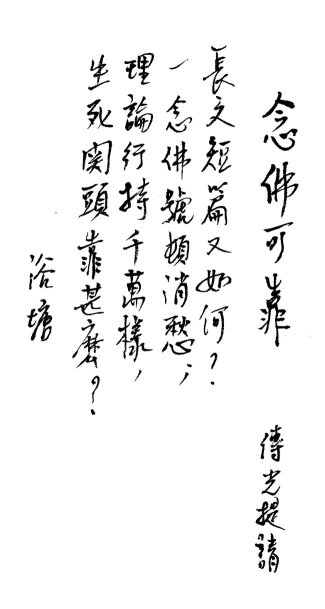 念佛可靠
傳光提請
長文短篇又如何？
一念佛號頓消愁；
理論行持千萬樣，
生死関頭靠甚麽？
浴塘